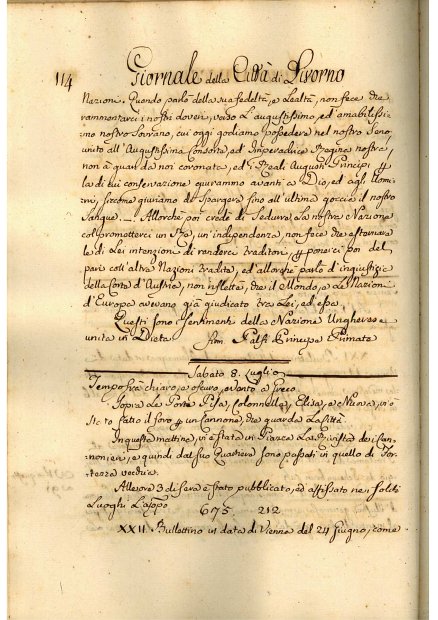 114 Giornale della Città di Livorno
Nazioni. Quando parlò della sua fedeltà, e Lealtà, non fece che
rammentarci i nostri doveri, verso L'augustissimo, ed amabilissi-
mo nostro Sovrano, cui oggi godiamo possedere nel nostro Seno,
unito all'Augustissima Consorte, ed Imperadrice Regina nostra,
non à quanda noi coronata, ed i Reali Augusti Principi p
la di cui conservazione giurammo avanti a Dio, ed agli Uomi-
ni, siccome giuriamo di Spargere fino all'ultima goccia il nostro
Sangue. Allorchè poi credè di Sedurre La nostra Nazione
col prometterci un Rè, un'independenza, non fece che esternare
le di Lei intenzioni di renderci traditori, p porreici poi del
pari coll'altre Nazioni tradite, ed allorchè parlò d'ingiustizie
della Corte d'Austria, non riflettè, che il Mondo, e Le Nazioni
d'Europa avevano già giudicato tra Lei, ed essa.
Questi sono i sentimenti della Nazione Ungherese
unita in Dieta Principe Primate
Sabato 8. Luglio
Tempo fra chiaro, e oscuro, e vento a Greco
Sopra Le Porte Pisa, Colonnella, Elisa, e Nuova, vi è
Stato fatto il foro p un Cannone, che guarda La Città
In questa mattina, vi è stata in Piazza La Rivista dei Can-
nonieri, e quindi dal suo Quartiere sono passati in quello di For-
tezza vecchia.
Alle ore 3 di sera è stato pubblicato, ed affissato nei soliti
Luoghi L'appo
675 212
XXII Bullettino in data di Vienna del 24 Giugno, come